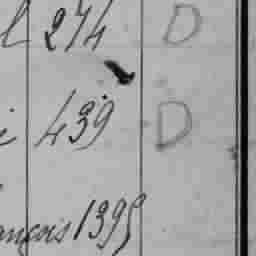 l 274 D
e 439 D
ançois 1395